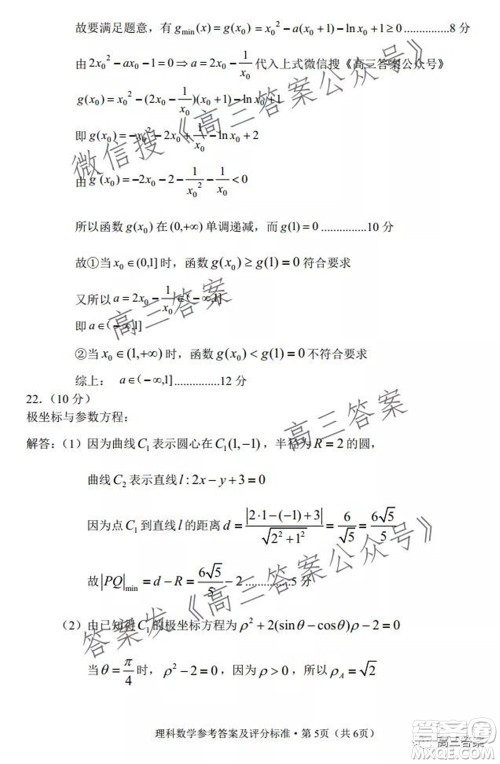 故要满足题意，有 g_min(x)=g(x₀)=x₀²-a(x₀+1)-ln x₀+1≥0...............8 分
由 2x₀²-ax₀-1=0⇒a=2x₀-1/x₀ 代入上式微信搜《高三答案公众号》
g(x₀)=x₀²-(2x₀-1/x₀)(x₀+1)-ln x₀+1
即 g(x₀)=-x₀²-2x₀+1/x₀-ln x₀+2
由 g'(x₀)=-2x₀-2-1/x₀²-1/x₀<0
所以函数 g(x₀) 在 (0,+∞) 单调递减，而 g(1)=0...............10 分
故①当 x₀∈(0,1] 时，函数 g(x₀)≥g(1)=0 符合要求
又所以 a=2x₀-1/x₀∈(-∞,1]
即 a∈(-∞,1]
②当 x₀∈(1,+∞) 时，函数 g(x₀)<g(1)=0 不符合要求
综上： a∈(-∞,1]...............12 分
22．（10 分）
极坐标与参数方程：
解答：（1）因为曲线 C₁ 表示圆心在 C₁(1,-1)，半径为 R=2 的圆，
曲线 C₂ 表示直线 l:2x-y+3=0
因为点 C₁ 到直线 l 的距离 d=|2·1-(-1)+3|/√(2²+1²)=6/√5=6√5/5
故 |PQ|_min=d-R=6√5/5-2...............5 分
（2）由已知得 C₁ 的极坐标方程为 ρ²+2(sinθ-cosθ)ρ-2=0
当 θ=π/4 时，ρ²-2=0，因为 ρ>0，所以 ρ_A=√2
理科数学参考答案及评分标准·第 5页（共 6页）
微信搜《高三答案公众号》
高三答案
高三答案
答案发《高三答案公众号》
高三答案